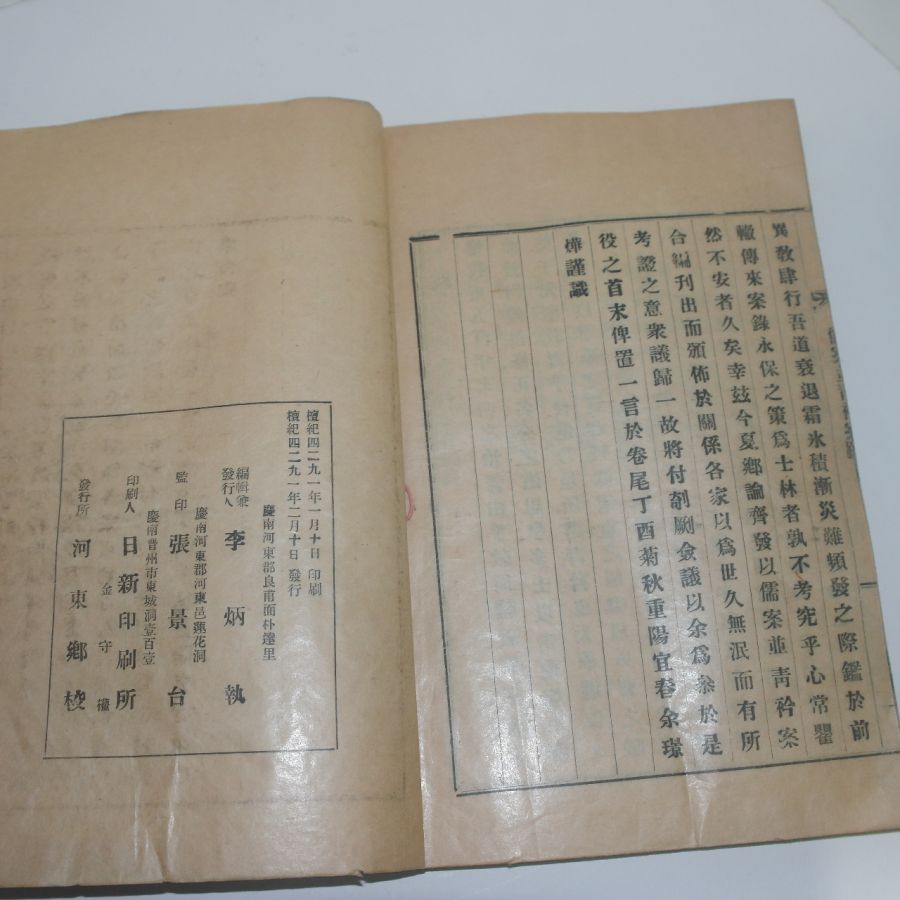 異敎肆行吾道衰退霜氷積漸災難頻發之際鑑於前
轍傳來案錄永保之策爲士林者孰不考究乎心常瞿
然不安者久矣幸玆今夏鄕論齊發以儒案並靑衿案
合編刊出而頒佈於關係各家以爲世久無泯而有所
考證之意衆議歸一故將付剞劂僉議以余爲參於是
役之首末俾置一言於卷尾丁酉菊秋重陽宜春余璟
燁謹識
檀紀四二九一年一月十日 印刷
檀紀四二九一年二月十日 發行
慶南河東郡良甫面朴達里
編輯兼發行人 李炳執
慶南河東郡河東邑蓮花洞
監印 張景台
慶南晋州市東城洞壹百壹
印刷人 日新印刷所
金守
發行所 河東鄕校